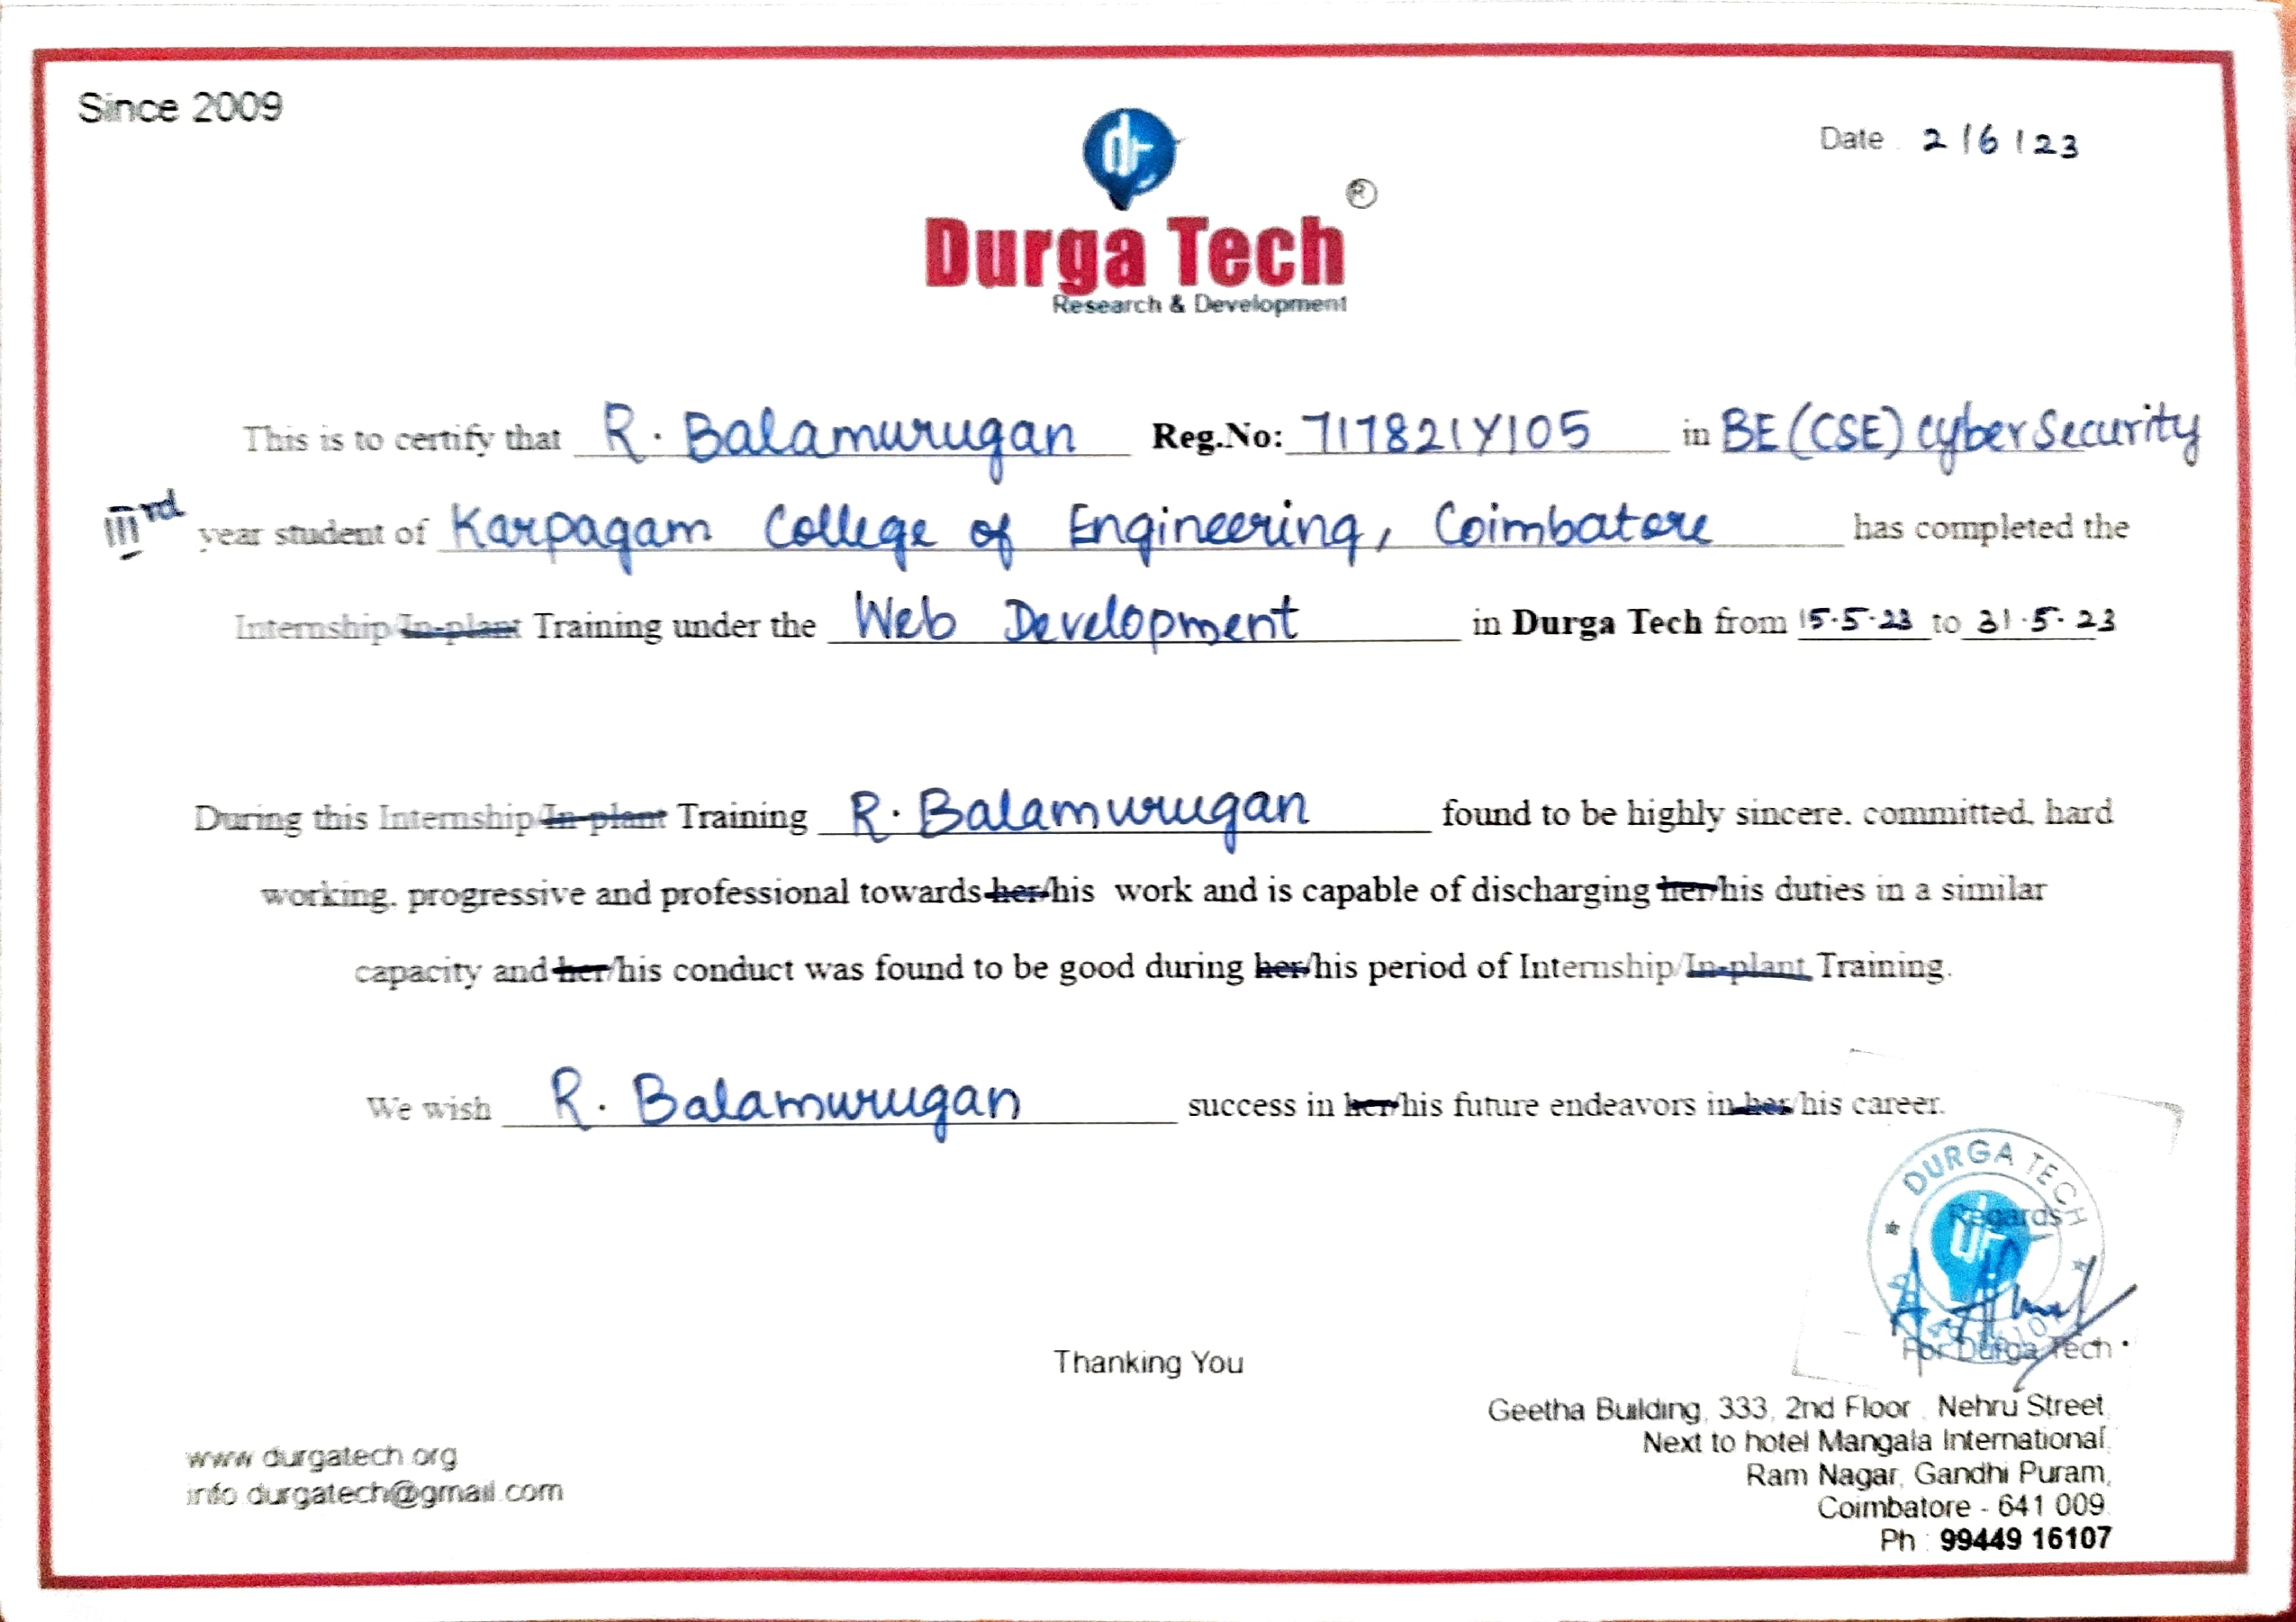 Since 2009
Date 2/6/23
dr
®
Durga Tech
Research & Development
This is to certify that R. Balamurugan Reg.No: 717821Y105 in BE (CSE) cyber Security
IIIrd year student of Karpagam College of Engineering, Coimbatore has completed the
Internship/In-plant Training under the Web Development in Durga Tech from 15.5.23 to 31.5.23
During this Internship/In-plant Training R. Balamurugan found to be highly sincere. committed. hard
working. progressive and professional towards her/his work and is capable of discharging her/his duties in a similar
capacity and her/his conduct was found to be good during her/his period of Internship/In-plant Training.
We wish R. Balamurugan success in her/his future endeavors in her/his career.
DURGA TECH
Regards
For Durga Tech
Thanking You
Geetha Building, 333, 2nd Floor, Nehru Street,
Next to hotel Mangala International,
Ram Nagar, Gandhi Puram,
Coimbatore - 641 009.
Ph : 99449 16107
www.durgatech.org
info.durgatech@gmail.com